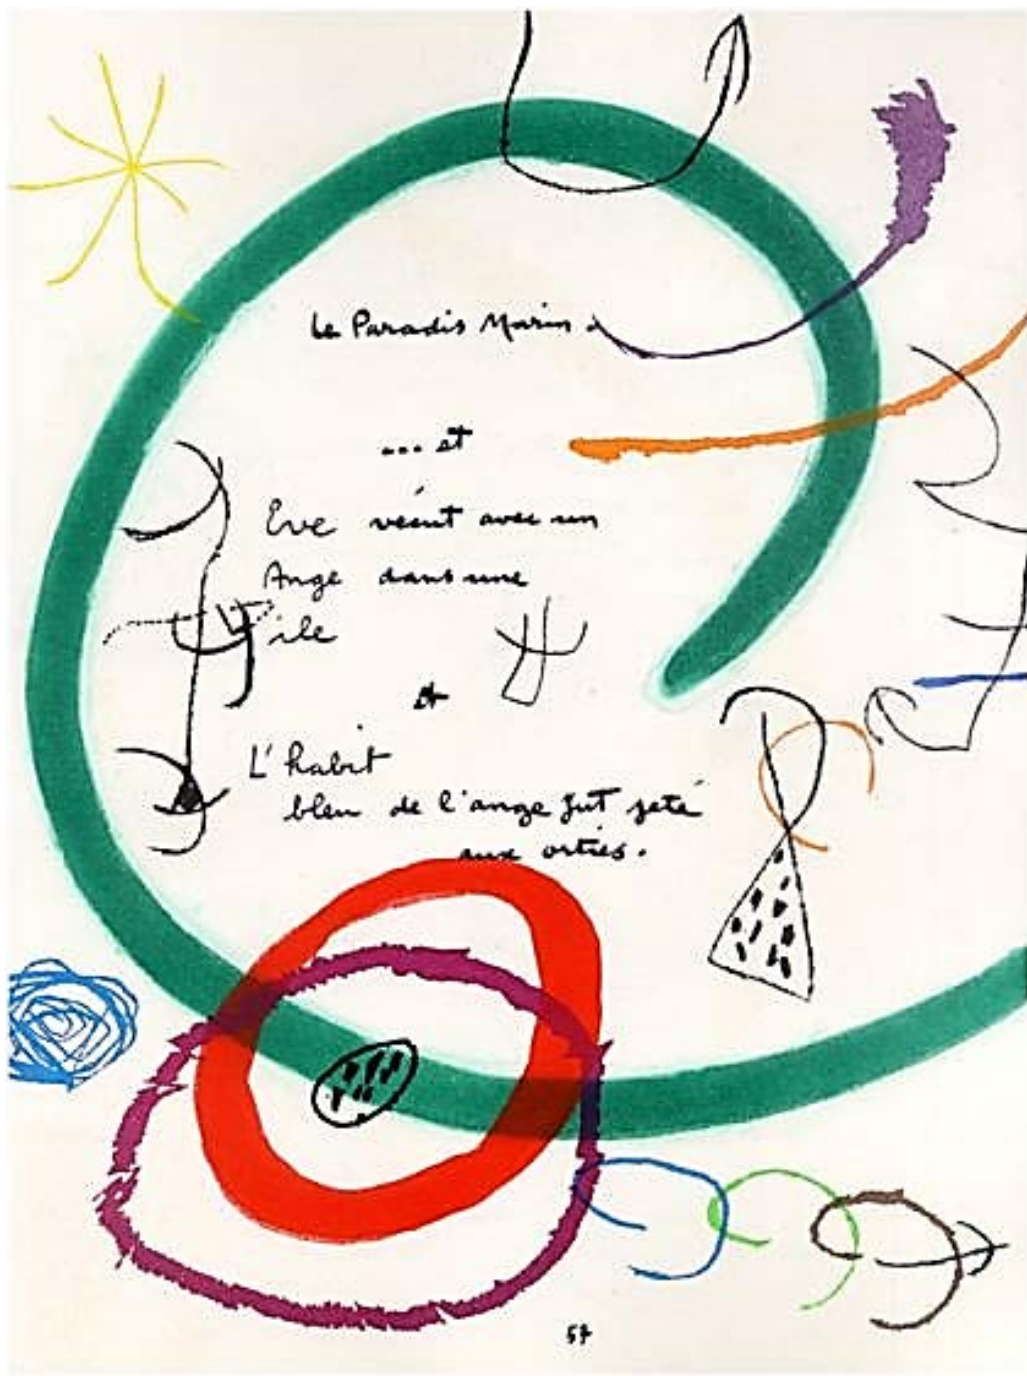 Le Paradis Marin.
... et
Eve vécut avec un
Ange dans une
île
et
L'habit
bleu de l'ange fut jeté
aux orties.
57